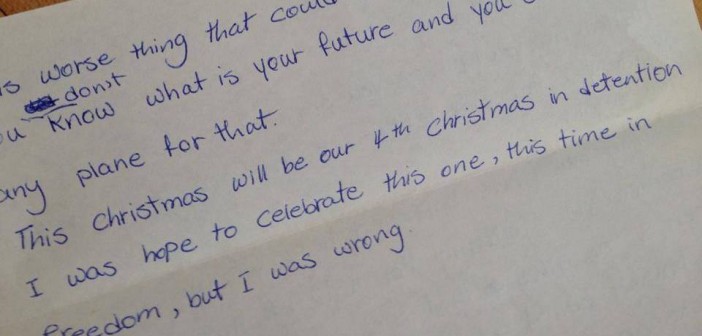 worse thing that
don't
know what is your future and you
any plane for that.
This christmas will be our 4th christmas in detention
I was hope to celebrate this one, this time in
freedom, but I was wrong.